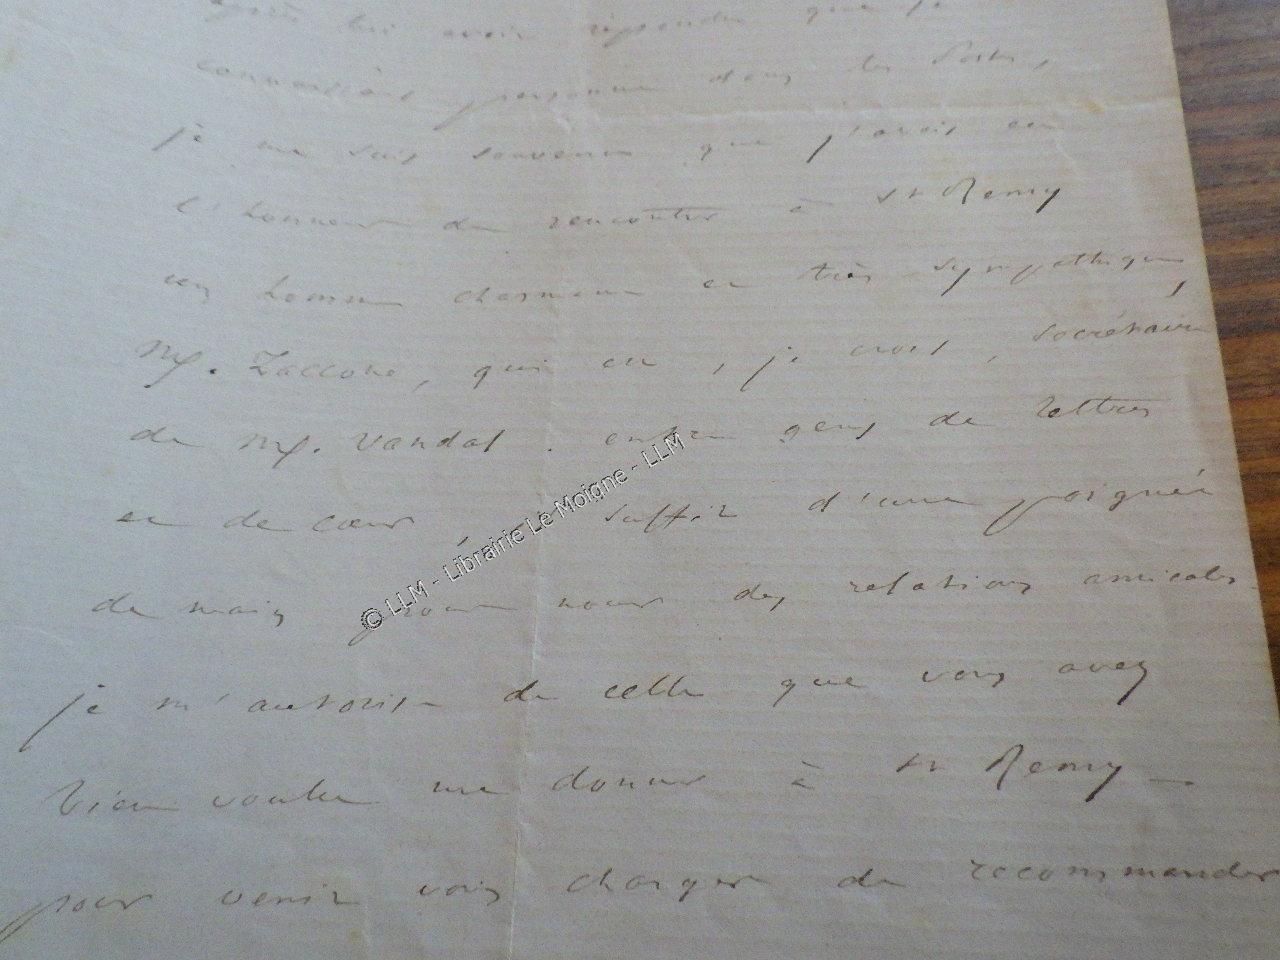 après lui avoir répondu que je
connaissais personne dans les Postes,
je me suis souvenu que j'avais eu
l'honneur de rencontrer à St Remy
un homme charmant et très sympathique,
M. Zaccone, qui est, je crois, secrétaire
de M. Vandal. entre gens de lettres
et de cœur, suffit d'une poignée
de main pour nouer des relations amicales
je m'autorise de celle que vous avez
bien voulu me donner à St Remy —
pour venir vous charger de recommander
© LLM - Librairie Le Moigne - LLM